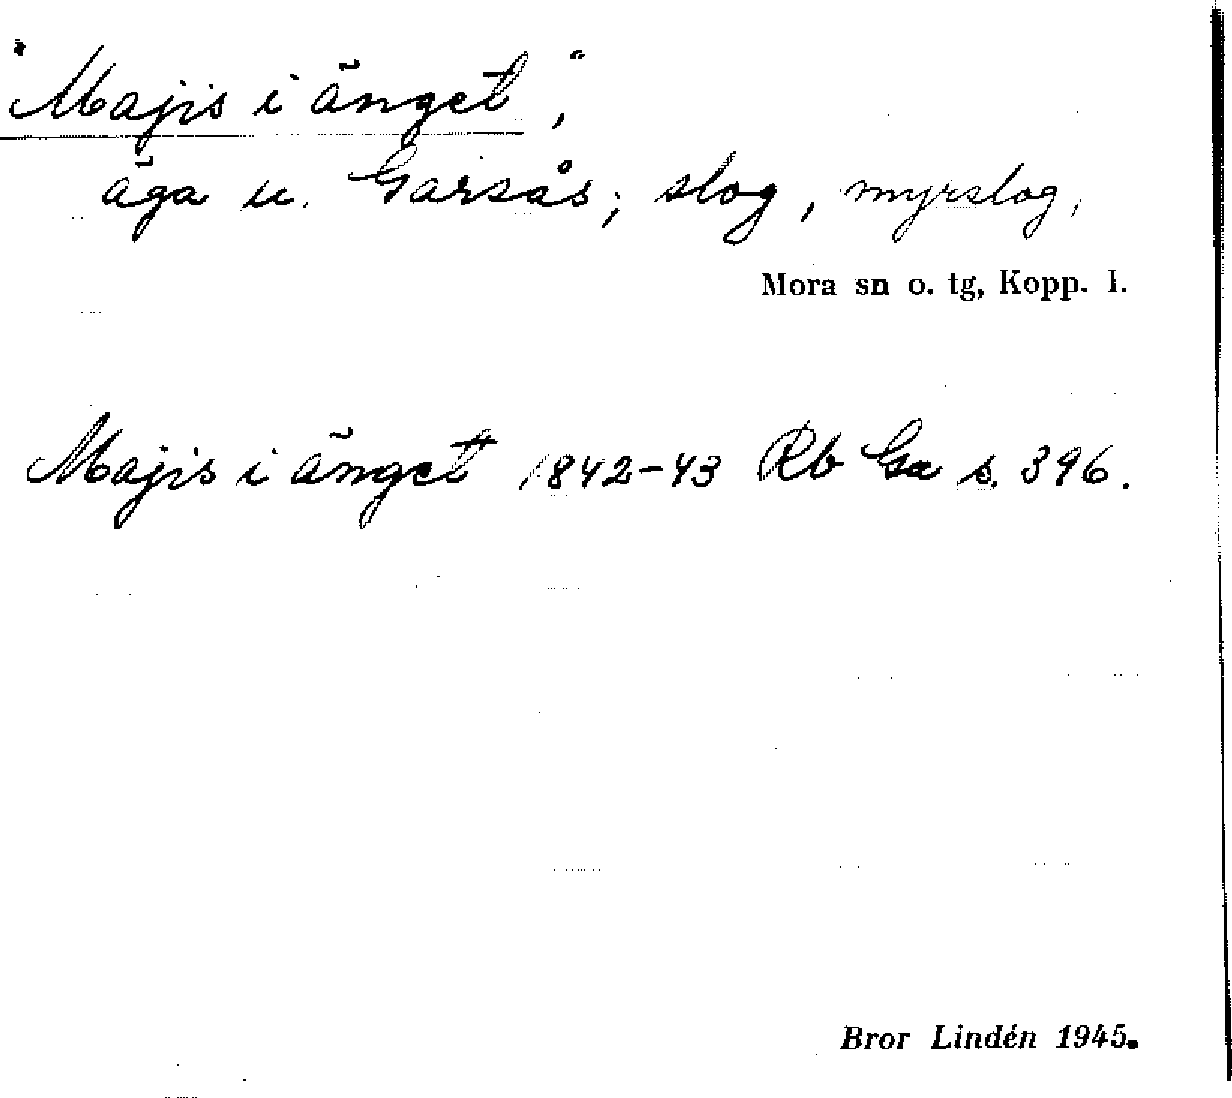 "Majis i änget",
äga u. Garsås; slog, myrslog,
Mora sn o. tg, Kopp. l.
Majis i änget 1842-43 Rb Ga s. 396.
Bror Lindén 1945.